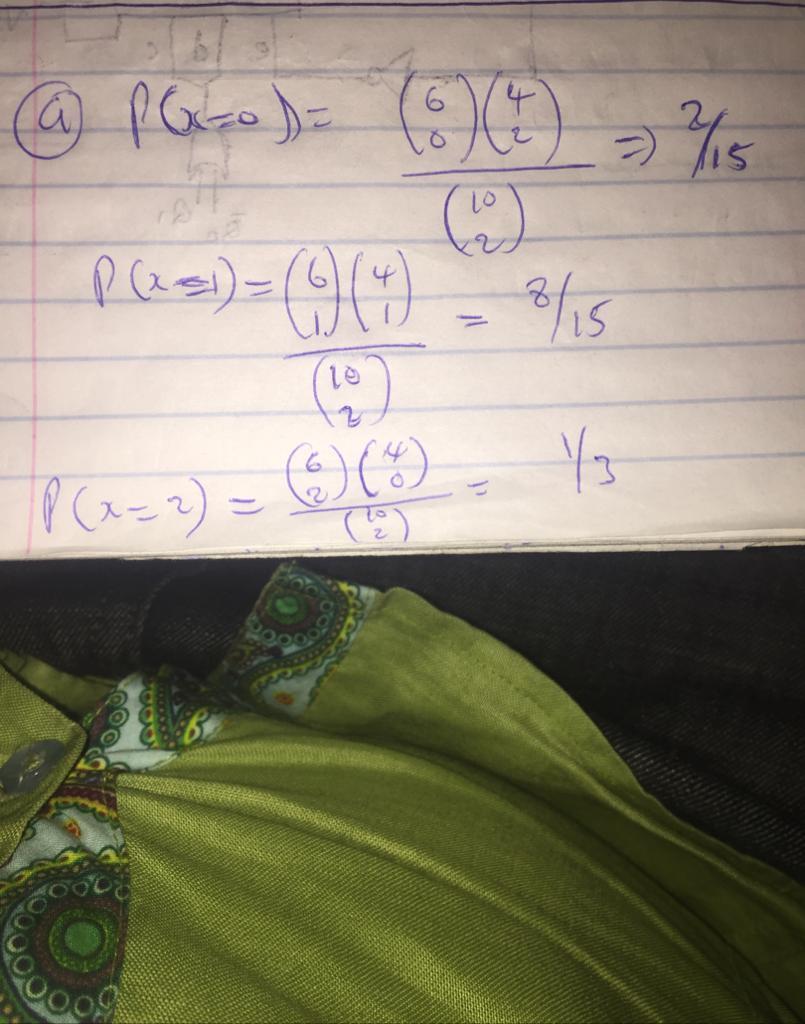 (a) P(x=0) = (6 0)(4 2) / (10 2) => 2/15
P(x=1) = (6 1)(4 1) / (10 2) = 8/15
P(x=2) = (6 2)(4 0) / (10 2) = 1/3